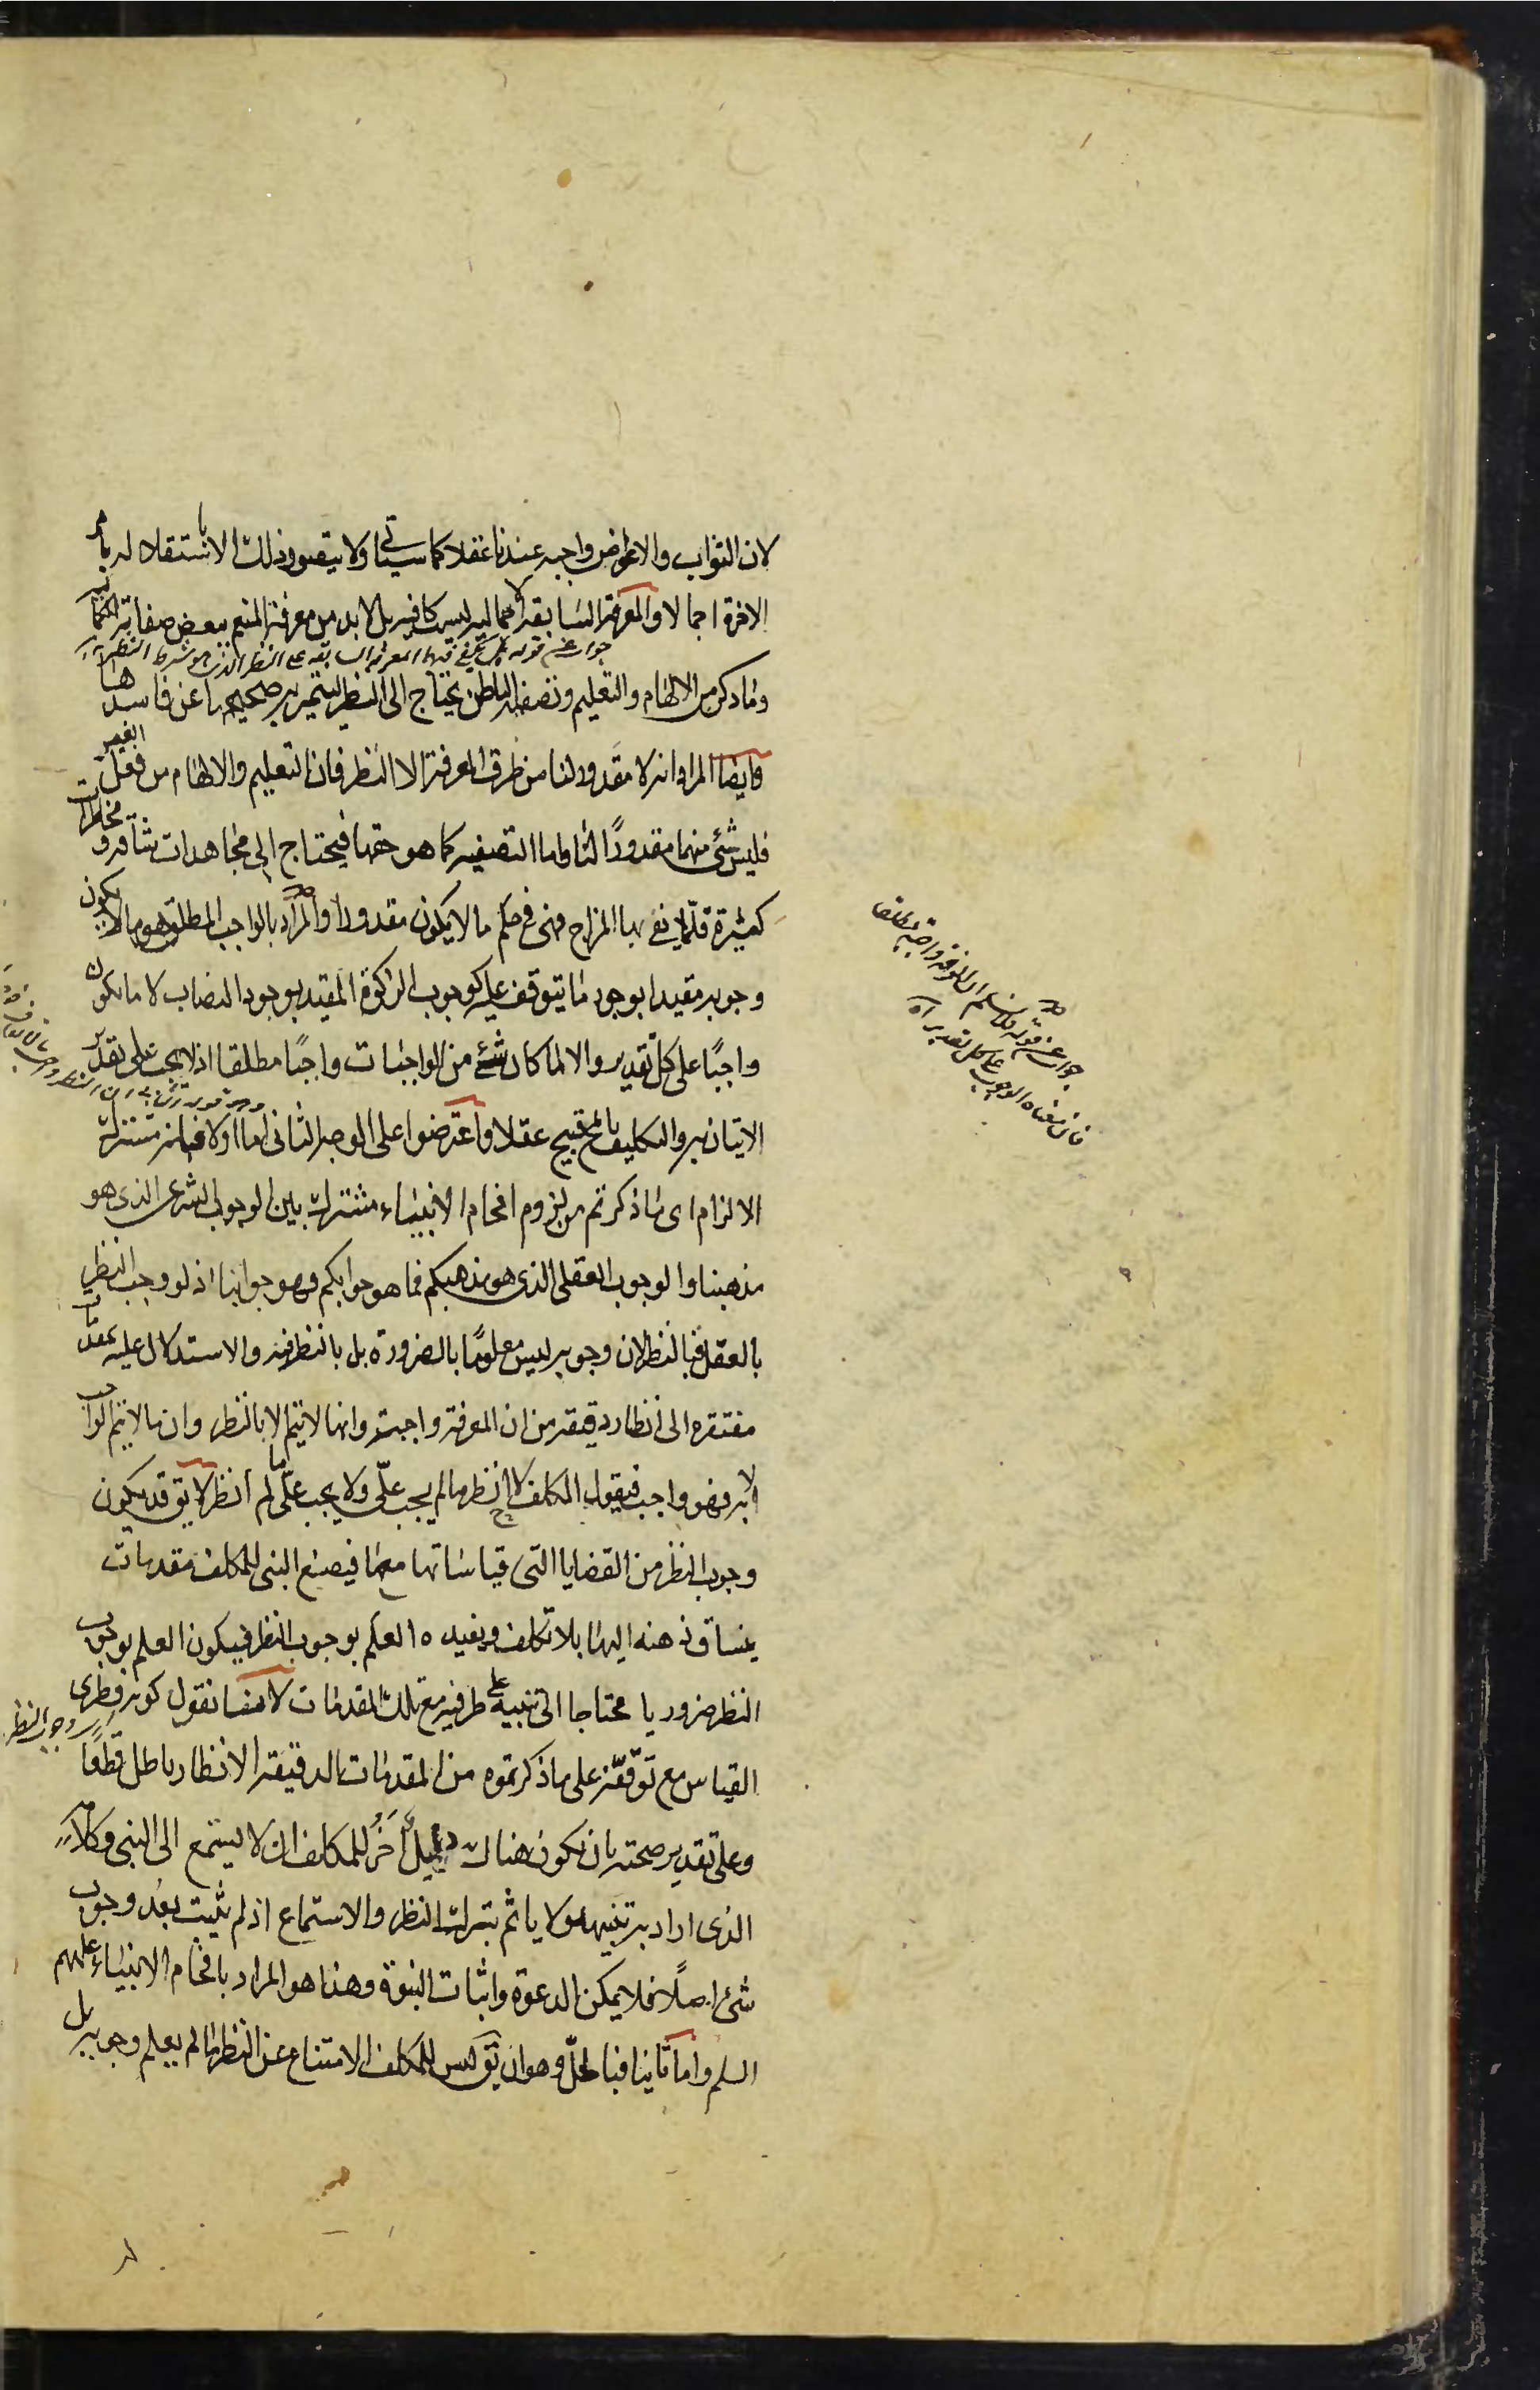 لان الثواب والاعواض واجبه عندنا عقلا كما سياتى ولا يتصور ذلك الا باستقلاله بامر
الاخرة اجمالا والمعرفة السابقه الاجماليه ليست كافيه بل لابد من معرفة المنعم ببعض صفاته
جواب عن قوله بل يكفى فيها المعرفه السابقه على النظر الذى هو شرط النظر
وما ذكر من الالهام والتعليم وتصفية الباطن يحتاج الى النظر ليتميز به صحيحها عن فاسدها
وايضا المراد انه لا مقدور لنا من طرق المعرفة الا النظر فان التعليم والالهام من فعل الغير
فليس شئ منهما مقدورًا لنا واما التصفيه كما هو حقها فيحتاج الى مجاهدات شاقه و مخاطرات
كثيرة قلّما يفى بها المزاج فهى فى حكم ما لا يكون مقدورا والمراد بالواجب المطلق هو ما لا يكون
وجوبه مقيدا بوجود ما يتوقف عليه كوجوب الزكوة المقيد بوجود النصاب لا ما يكون
واجبًا على كلّ تقدير والا لما كان شئ من الواجبات واجبًا مطلقا اذ لا يجب على تقدير
الاتيان به والتكليف بالمح قبيح عقلا واعترضوا على الوجه الثانى اما اولا فبانه مشترك
الالزام اى ما ذكرتم من لزوم افحام الانبياء مشترك بين الوجوب الشرعى الذى هو
مذهبنا والوجوب العقلى الذى هو مذهبكم فما هو جوابكم فهو جوابنا اذ لو وجب النظر
بالعقل فبالنظر لان وجوبه ليس معلومًا بالضرورة بل بالنظر فيه والاستدلال عليه بمقدمات
مفتقره الى انظار دقيقه من ان المعرفة واجبة وانها لا تتم الا بالنظر وان ما لا يتم الواجب
الا به فهو واجب فيقول المكلف ح لا انظر ما لم يجب علّى ولا يجب علّى ما لم انظر لا يق قد يكون
وجوب النظر من القضايا التى قياساتها معها فيضع النبى للمكلف مقدمات
ينساق ذهنه اليها بلا تكلف ويفيده العلم بوجوب النظر فيكون العلم بوجوب
النظر ضروريا محتاجا الى تنبيه على طرفيه مع تلك المقدمات لانا نقول كونه فطرى
القياس مع توقّفه على ما ذكرتموه من المقدمات الدقيقة الانظار باطل قطعًا
وعلى تقدير صحته بان يكون هناك دليل آخر للمكلف ان لا يستمع الى النبى وكلامه
الذى اراد به تنبيهه ولا ياثم بترك النظر والاستماع اذ لم يثبت بعد وجوب
شئ اصلًا فلا يمكن الدعوة واثبات النبوة وهذا هو المراد بافحام الانبياء عليهم
السلم واما ثانيا فبالحلّ وهو ان يق ليس للمكلف الامتناع عن النظر ما لم يعلم وجوبه بل
جواب عن قوله ولا نسلم ان المعرفه واجبه مطلقا
فان معناه الوجوب على كل تقدير اه
وجوب النظر